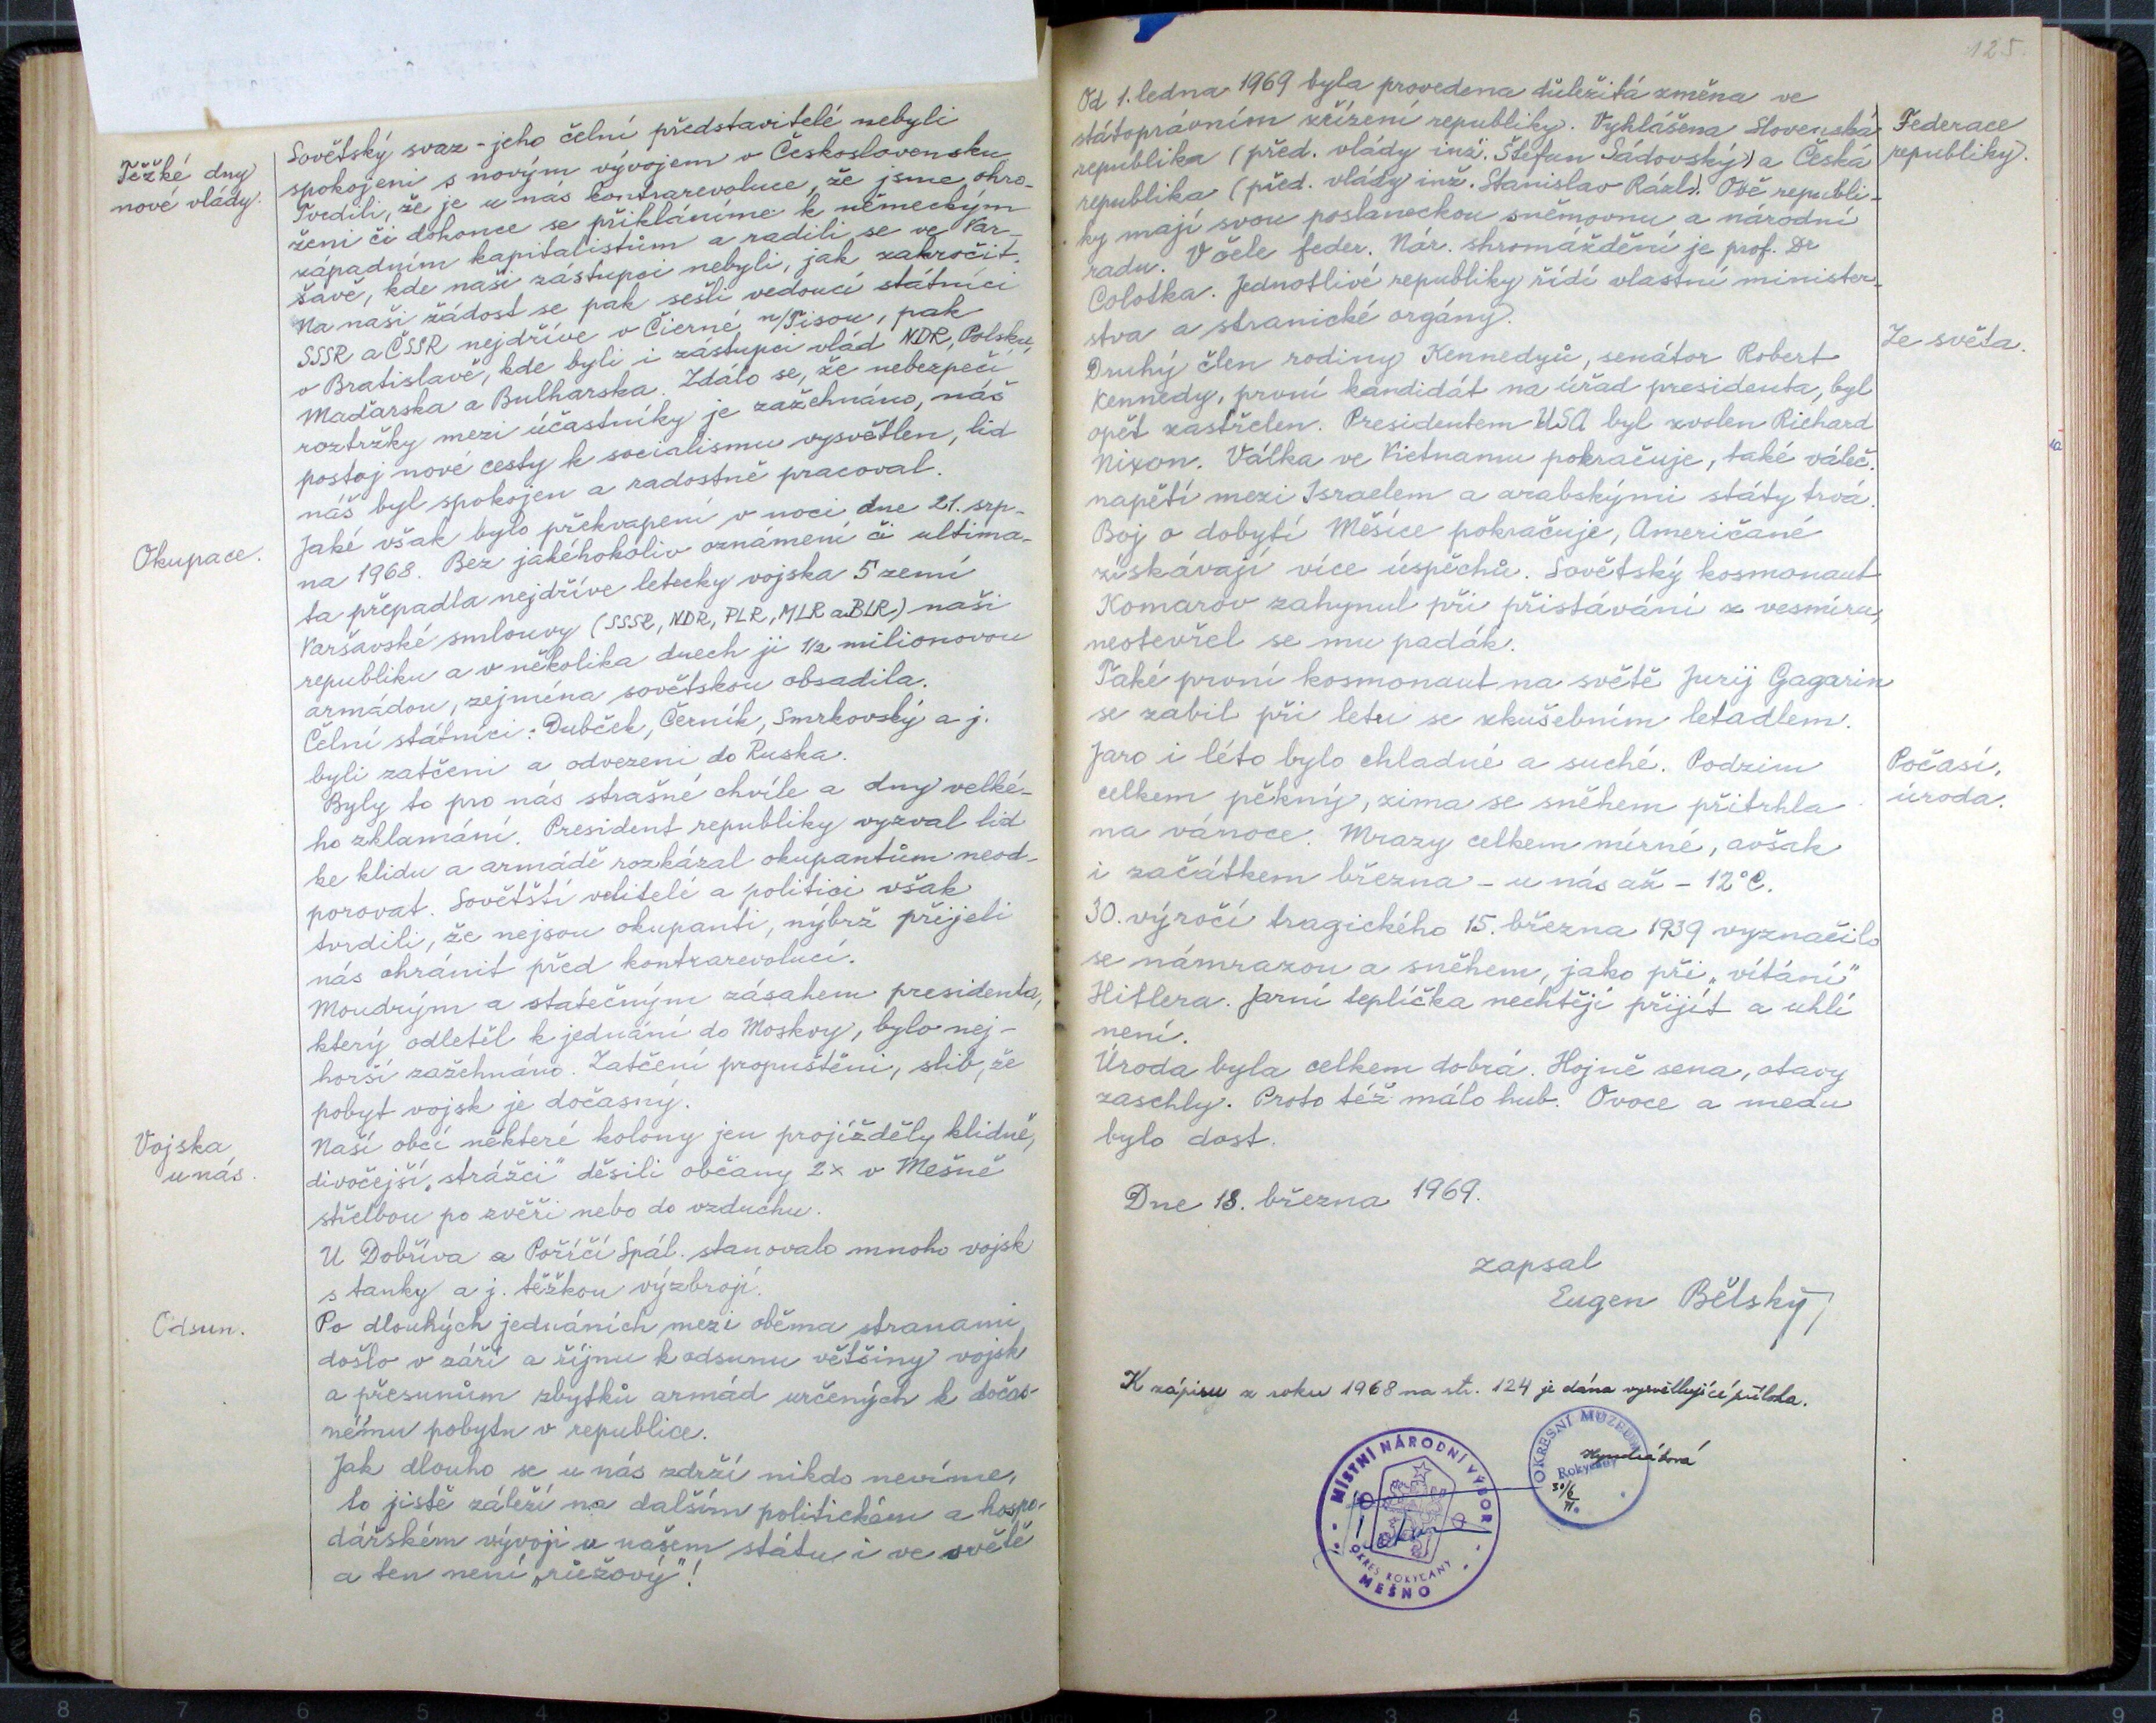 Těžké dny
nové vlády.
Sovětský svaz - jeho čelní představitelé nebyli
spokojeni s novým vývojem v Československu
Tvrdili, že je u nás kontrarevoluce, že jsme ohro-
ženi či dokonce se přikláníme k německým
západním kapitalistům a radili se ve Var-
šavě, kde naši zástupci nebyli, jak zakročit.
Na naši žádost se pak sešli vedoucí státníci
SSSR a ČSSR nejdříve v Čierné n/Tisou, pak
v Bratislavě, kde byli i zástupci vlád NDR, Polska,
Maďarska a Bulharska. Zdálo se, že nebezpečí
roztržky mezi účastníky je zažehnáno, náš
postoj nové cesty k socialismu vysvětlen, lid
náš byl spokojen a radostně pracoval.
Okupace.
Jaké však bylo překvapení v noci dne 21. srp-
na 1968. Bez jakéhokoliv oznámení či ultima-
ta přepadla nejdříve letecky vojska 5 zemí
Varšavské smlouvy (SSSR, NDR, PLR, MLR a BLR) naši
republiku a v několika dnech ji 1/2 milionovou
armádou, zejména sovětskou obsadila.
Čelní státníci: Dubček, Černík, Smrkovský a j.
byli zatčeni a odvezeni do Ruska.
Byly to pro nás strašné chvíle a dny velké-
ho zklamání. President republiky vyzval lid
ke klidu a armádě rozkázal okupantům neod-
porovat. Sovětští velitelé a politici však
tvrdili, že nejsou okupanti, nýbrž přijeli
nás ohránit před kontrarevolucí.
Moudrým a statečným zásahem presidenta,
který odletěl k jednání do Moskvy, bylo nej-
horší zažehnáno. Zatčení propuštěni, slib, že
pobyt vojsk je dočasný.
Vojska
u nás.
Naší obcí některé kolony jen projížděly klidně,
divočejší „strážci" děsili občany 2x v Mešně
střelbou po zvěři nebo do vzduchu.
U Dobříva a Poříčí Spál. stanovalo mnoho vojsk
s tanky a j. těžkou výzbrojí.
Odsun.
Po dlouhých jednáních mezi oběma stranami
došlo v září a říjnu k odsunu většiny vojsk
a přesunům zbytků armád určených k dočas-
nému pobytu v republice.
Jak dlouho se u nás zdrží nikdo nevíme,
to jistě záleží na dalším politickém a hospo-
dářském vývoji v našem státu i ve světě
a ten není „růžový"!
125.
Od 1. ledna 1969 byla provedena důležitá změna ve
státoprávním zřízení republiky. Vyhlášena Slovenská
republika (před. vlády inž. Štefan Sádovský) a Česká
republika (před. vlády inž. Stanislav Rázl). Obě republi-
ky mají svou poslaneckou sněmovnu a národní
radu. V čele feder. Nár. shromáždění je prof. Dr
Colotka. Jednotlivé republiky řídí vlastní minister-
stva a stranické orgány.
Federace
republiky.
Druhý člen rodiny Kennedyů, senátor Robert
Kennedy, první kandidát na úřad presidenta, byl
opět zastřelen. Presidentem USA byl zvolen Richard
Nixon. Válka ve Vietnamu pokračuje, také váleč.
napětí mezi Israelem a arabskými státy trvá.
Boj o dobytí Měsíce pokračuje, Američané
získávají více úspěchů. Sovětský kosmonaut
Komarov zahynul při přistávání z vesmíru,
neotevřel se mu padák.
Také první kosmonaut na světě Jurij Gagarin
se zabil při letu se zkušebním letadlem.
Ze světa.
Jaro i léto bylo chladné a suché. Podzim
celkem pěkný, zima se sněhem přitrhla
na vánoce. Mrazy celkem mírné, avšak
i začátkem března - u nás až - 12°C.
30. výročí tragického 15. března 1939 vyznačilo
se námrazou a sněhem, jako při „vítání"
Hitlera. Jarní teplíčka nechtějí přijít a uhlí
není.
Úroda byla celkem dobrá. Hojně sena, otavy
zaschly. Proto též málo hub. Ovoce a medu
bylo dost.
Počasí,
úroda.
Dne 18. března 1969.
zapsal
Eugen Bělský
K zápisu z roku 1968 na str. 124 je dána vysvětlující příloha.
MÍSTNÍ NÁRODNÍ VÝBOR
OKRES ROKYCANY
MEŠNO
OKRESNÍ MUZEUM
Rokycany